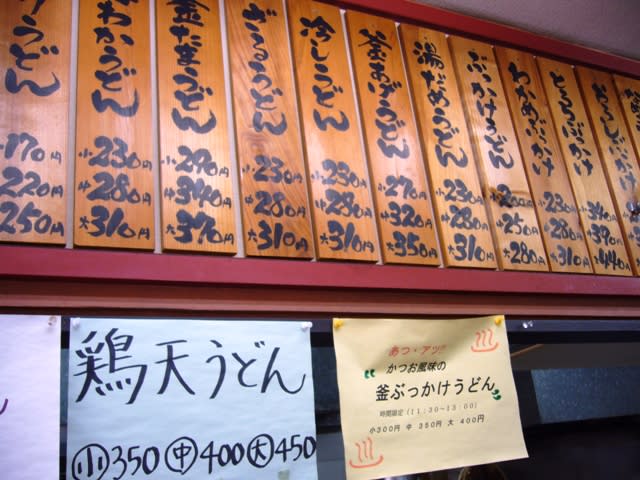 けうどん
170円
220円
250円
わかうどん
小230円
中280円
大310円
釜たまうどん
小290円
中340円
大370円
ざるうどん
小230円
中280円
大310円
冷しうどん
小230円
中280円
大310円
釜あげうどん
小270円
中320円
大350円
湯だめうどん
小230円
中280円
大310円
ぶっかけうどん
小200円
中250円
大280円
わかめぶっかけ
小230円
中280円
大310円
とろろぶっかけ
小340円
中390円
大440円
おろしぶっかけ
鶏天うどん
小350 中400 大450
あつ・アツ!!
"かつお風味の
釜ぶっかけうどん"
時間限定(11:30~13:00)
小300円 中 350円 大 400円